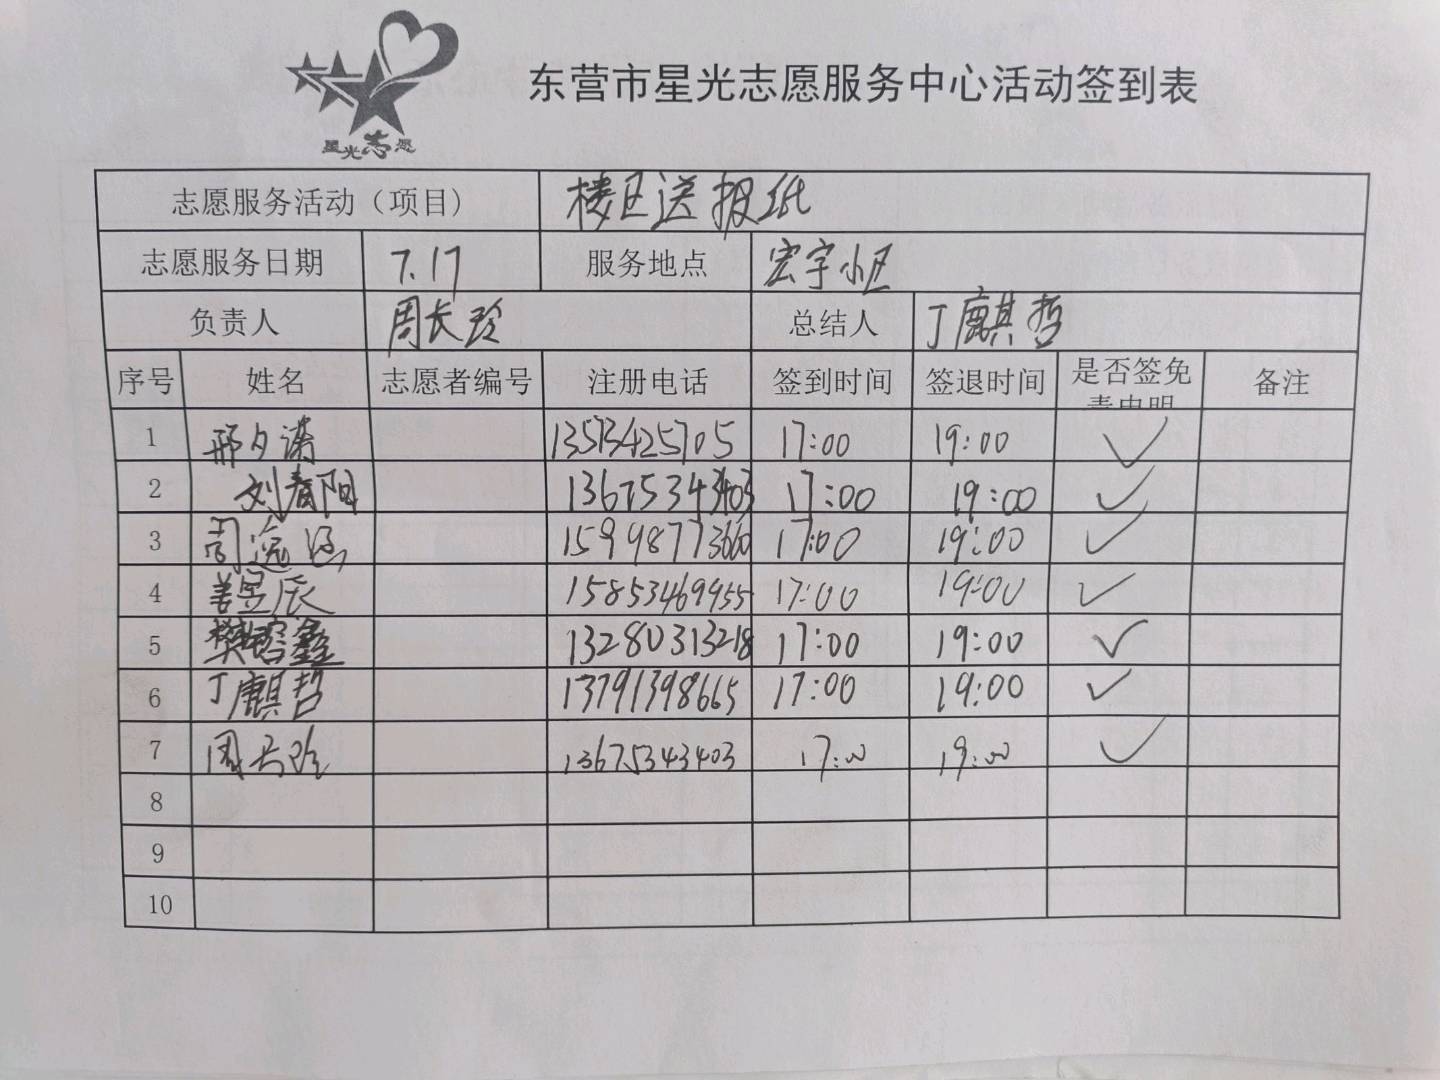 星光志愿
东营市星光志愿服务中心活动签到表
志愿服务活动（项目） 楼区送报纸
志愿服务日期 7.17 服务地点 宏宇小区
负责人 周长玲 总结人 丁麒哲
序号 姓名 志愿者编号 注册电话 签到时间 签退时间 是否签免责申明 备注
1 邢夕涛 13573425705 17:00 19:00 ✓
2 刘春阳 13675343403 17:00 19:00 ✓
3 周逸 15998773660 17:00 19:00 ✓
4 姜昱辰 15853469955 17:00 19:00 ✓
5 樊 鑫 13280313218 17:00 19:00 ✓
6 丁麒哲 13791398665 17:00 19:00 ✓
7 周长玲 13675343403 17:00 19:00 ✓
8
9
10